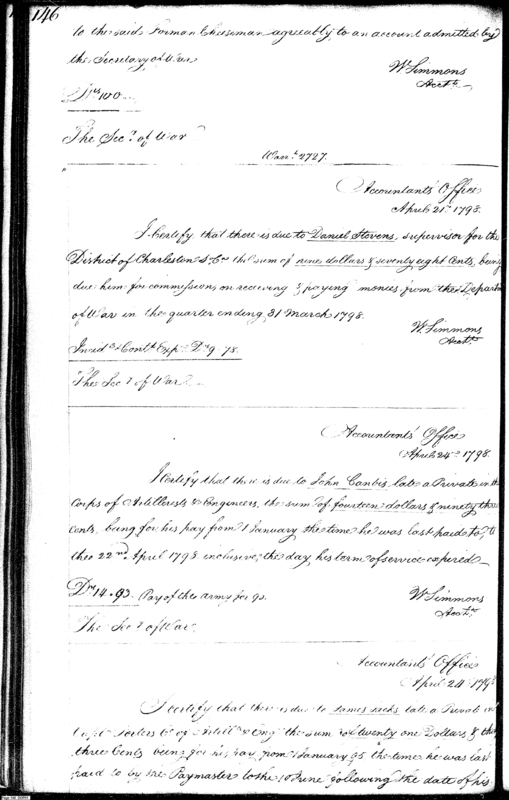 146
to the said Forman Cheeseman agreeably to an account admitted by
the Secretary of War
W Simmons
Acctt
Drs 100
The Secy of War
Warrt 2727.
Accountants' Office
April 21st 1798.
I Certify that there is due to Daniel Stevens, supervisor for the
District of Charleston S. Co the sum of nine dollars & seventy eight Cents, being
due him for commissions on receiving & paying monies from the Departm
of War in the quarter ending 31 March 1798.
W Simmons
Acctt
Incidl & Contt Exps Drs 9.78.
The Secy of War
Accountants' Office
April 24th 1798.
I Certify that there is due to John late a Private in the
Corps of Artillerists & Engineers, the sum of fourteen dollars & ninety three
Cents, being for his pay from 1 January the time he was last paid to,
the 22nd April 1793 inclusive, the day his term of service expired
Drs 14.93. Pay of the army for 98.
W Simmons
Acctt
The Secy of War.
Accountants' Office
April 24th 1798
I certify that there is due to James late a Private in
Capt of Artill & Eng the sum of twenty one Dollars &
three Cents being for his pay from 1 January 95 the time he was last
paid to by the Paymaster to the 10 June following the date of his